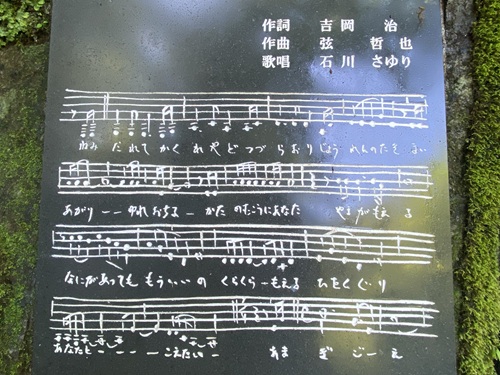 作詞 吉岡 治
作曲 弦 哲也
歌唱 石川 さゆり
ねみ だれて かく れ や ど つづ ら おり じょう れんのたき まい
あがり ー ー ゆれ おちる ー かた のむこうにあなた やまがもえ る
なにがあっても もう いい の くらくら ー もえる ひをくぐ り
あなたと ー ー ー ー こえたい ー あま ぎ ご ー え